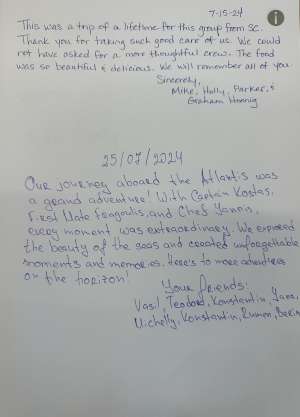 7-15-24
This was a trip of a lifetime for this group from SC.
Thank you for taking such good care of us. We could
not have asked for a more thoughtful crew. The food
was so beautiful & delicious. We will remember all of you.
Sincerely,
Mike, Holly, Parker, &
Graham
25/07/2024
Our journey aboard the Atlantis was
a grand adventure! With Captain Kostas,
First Mate and Chef Yannis,
every moment was extraordinary. We explored
the beauty of the seas and created unforgettable
moments and memories. Here's to more adventures
on the horizon!
Your friends:
Vasil, Teodora, Konstantin, Yana,
Michelly, Konstantin, Rumen,